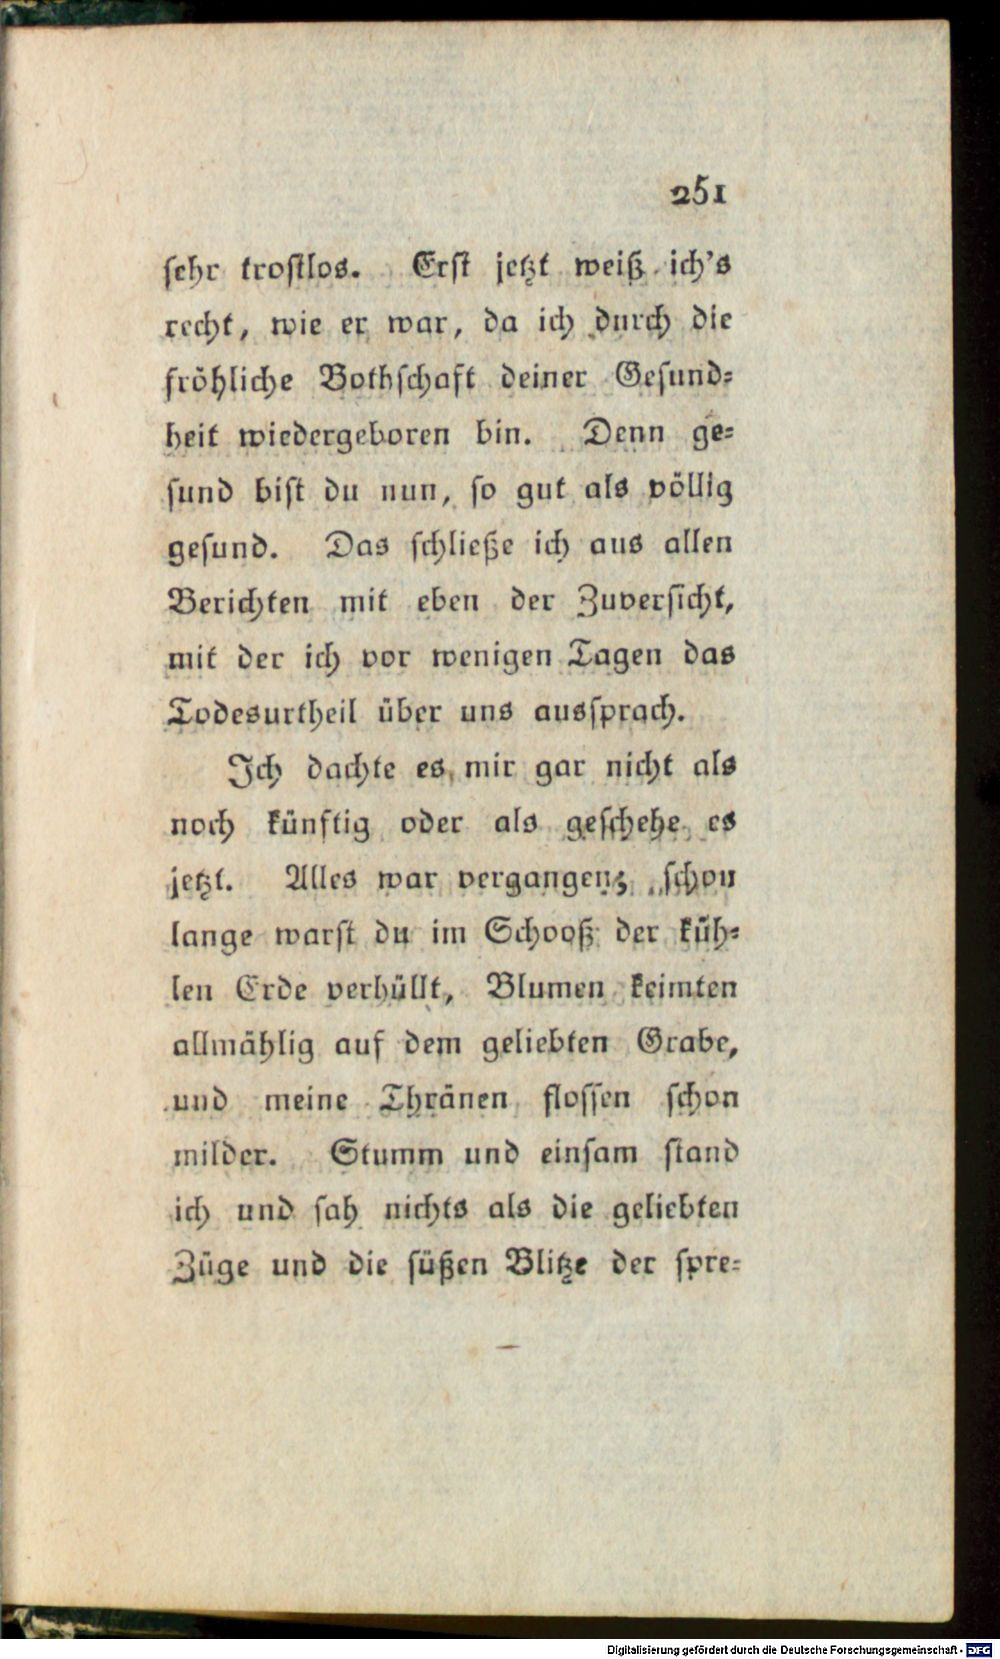 251
sehr trostlos. Erst jetzt weiß ich's
recht, wie er war, da ich durch die
fröhliche Bothschaft deiner Gesund⸗
heit wiedergeboren bin. Denn ge⸗
sund bist du nun, so gut als völlig
gesund. Das schließe ich aus allen
Berichten mit eben der Zuversicht,
mit der ich vor wenigen Tagen das
Todesurtheil über uns aussprach.
Ich dachte es mir gar nicht als
noch künftig oder als geschehe es
jetzt. Alles war vergangen; schon
lange warst du im Schooß der küh⸗
len Erde verhüllt, Blumen keimten
allmählig auf dem geliebten Grabe,
und meine Thränen flossen schon
milder. Stumm und einsam stand
ich und sah nichts als die geliebten
Züge und die süßen Blitze der spre⸗
Digitalisierung gefördert durch die Deutsche Forschungsgemeinschaft - DFG